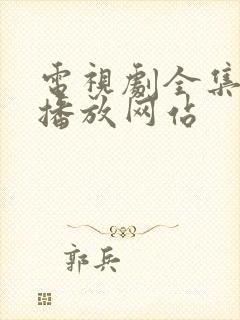 電視劇全集
播放网站
郭兵